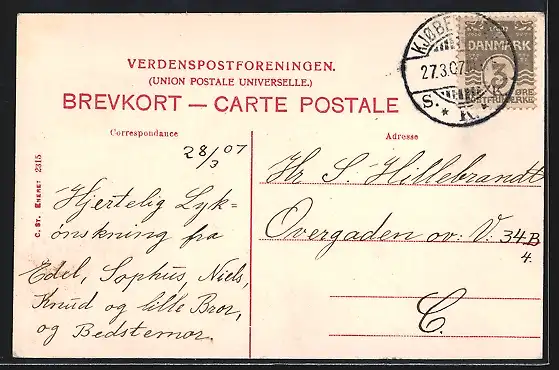 VERDENSPOSTFORENINGEN.
(UNION POSTALE UNIVERSELLE.)
BREVKORT — CARTE POSTALE
KJØBE
27.3.07
S. * K.
DANMARK
3
ØRE
POSTFRIMÆRKE
Correspondance
Adresse
C. ST. ENERET 2315
28/3 07
Hjertelig Lyk=
ønskning fra
Edel, Sophus, Niels,
Knud og lille Bror,
og Bedstemor.
Hr S. Hillebrandt
Overgaden ov. V. 34B
4.
C.